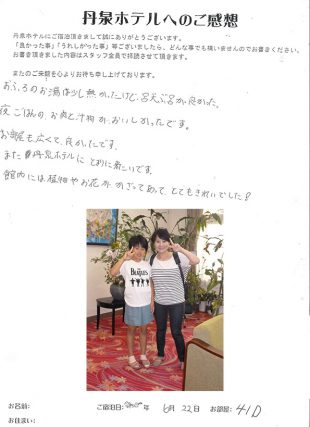 丹泉ホテルへのご感想
丹泉ホテルにご宿泊頂きまして誠にありがとうございます。
「良かった事」「うれしかった事」等ございましたら、どんな事でも構いませんのでお書きください。
お書き頂きました内容はスタッフ全員で拝読させて頂きます。
またのご来館を心よりお待ち申し上げております。
おふろのお湯は少し熱かったけど、露天ぶろが良かった。
夜ごはんのお肉と汁物がおいしかったです。
お部屋も広くて、良かったです。
また丹泉ホテルにとまりに来たいです。
館内には植物やお花がかざってあって、とてもきれいでした!
THE BEATLES
お名前:
ご宿泊日: 年 6月 22日 お部屋: 41D
お住まい: